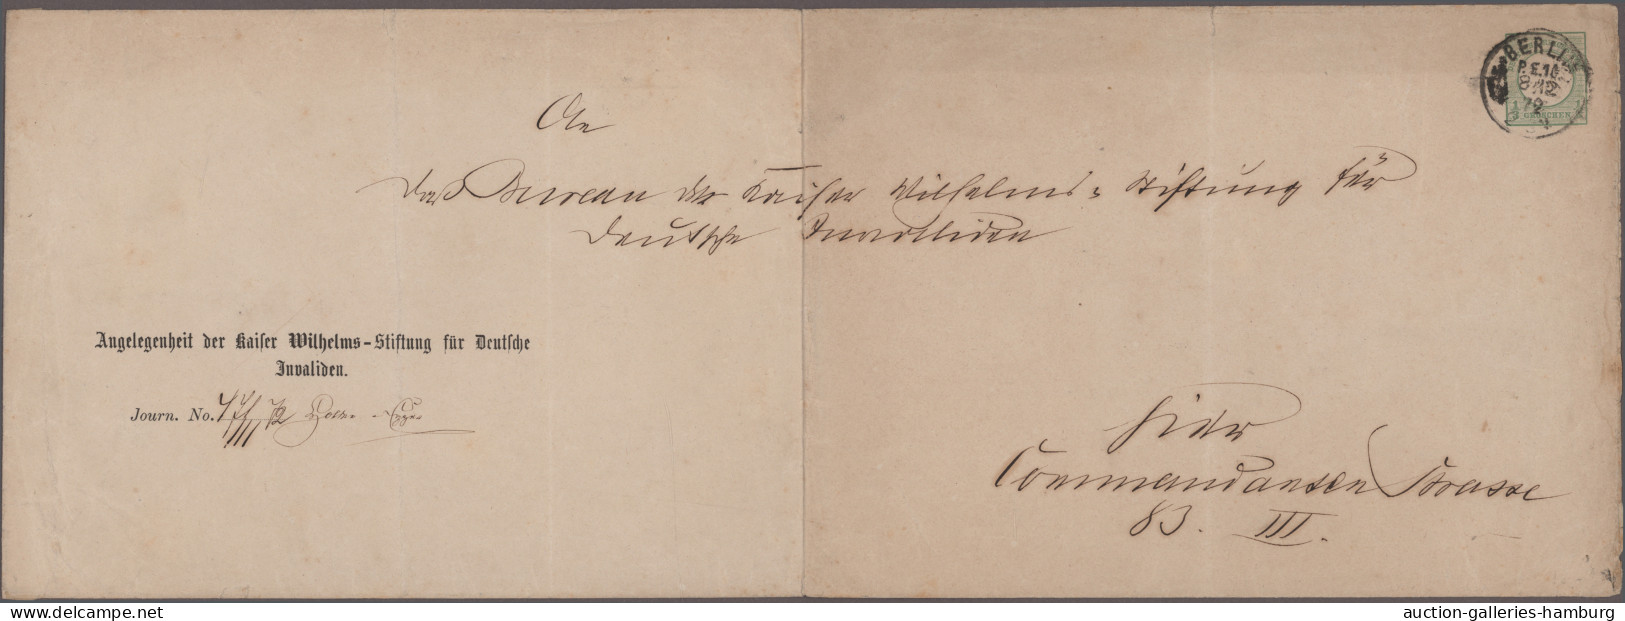 BERLIN
P.E.14
8 12
72
1/3 GROSCHEN
An
das Bureau der Kaiser Wilhelms-Stiftung für
deutsche Invaliden
Angelegenheit der Kaiser Wilhelms-Stiftung für Deutsche
Invaliden.
Journ. No.
hier
Commandanten Strasse
83. III.
www.delcampe.net
auction-galleries-hamburg